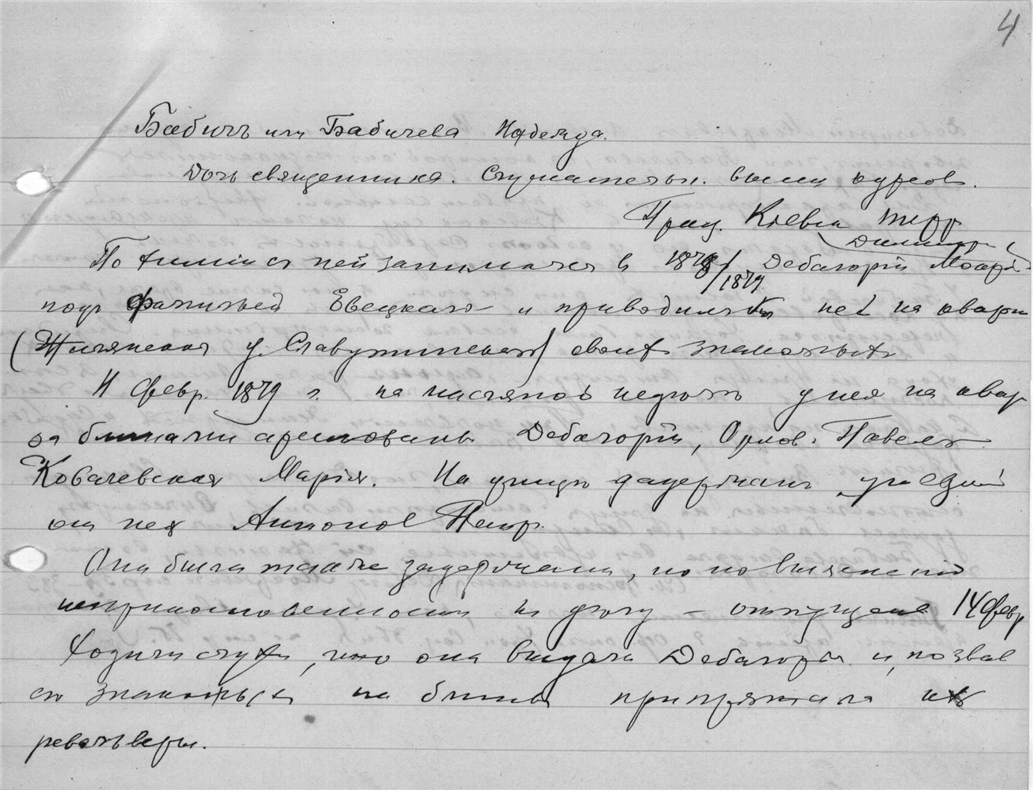 4
Бабичъ или Бабичева Надежда.
Дочь священника. Слушательн. высш. курсов.
Киевск
По химіи с ней занимался в 1878/1879 Дебагорій Мокр
под фамильей Евецкаго и приводил к ней на кварт
(Жилянская у. Славутинской) своих знакомых
11 февр. 1879 г. на масляной неделе у нея на квар
за блинами арестованы Дебагорій, Орлов. Павел
Ковалевская Марія. На улице задержан ушедший
от нея Антонов Петр.
Она была также задержана, но по выяснении
неприкосновенности к делу – отпущена 14 февр
Ходили слухи, что она выдала Дебагорія и, позвав
его знакомых на блины припрятала их
револьверы.